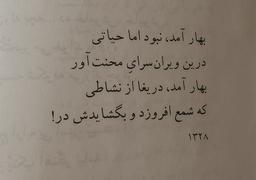 بهار آمد، نبود اما حیاتی
درین ویران‌سرایِ محنت آور
بهار آمد، دریغا از نشاطی
که شمع افروزد و بگشایدش در!
۱۳۲۸